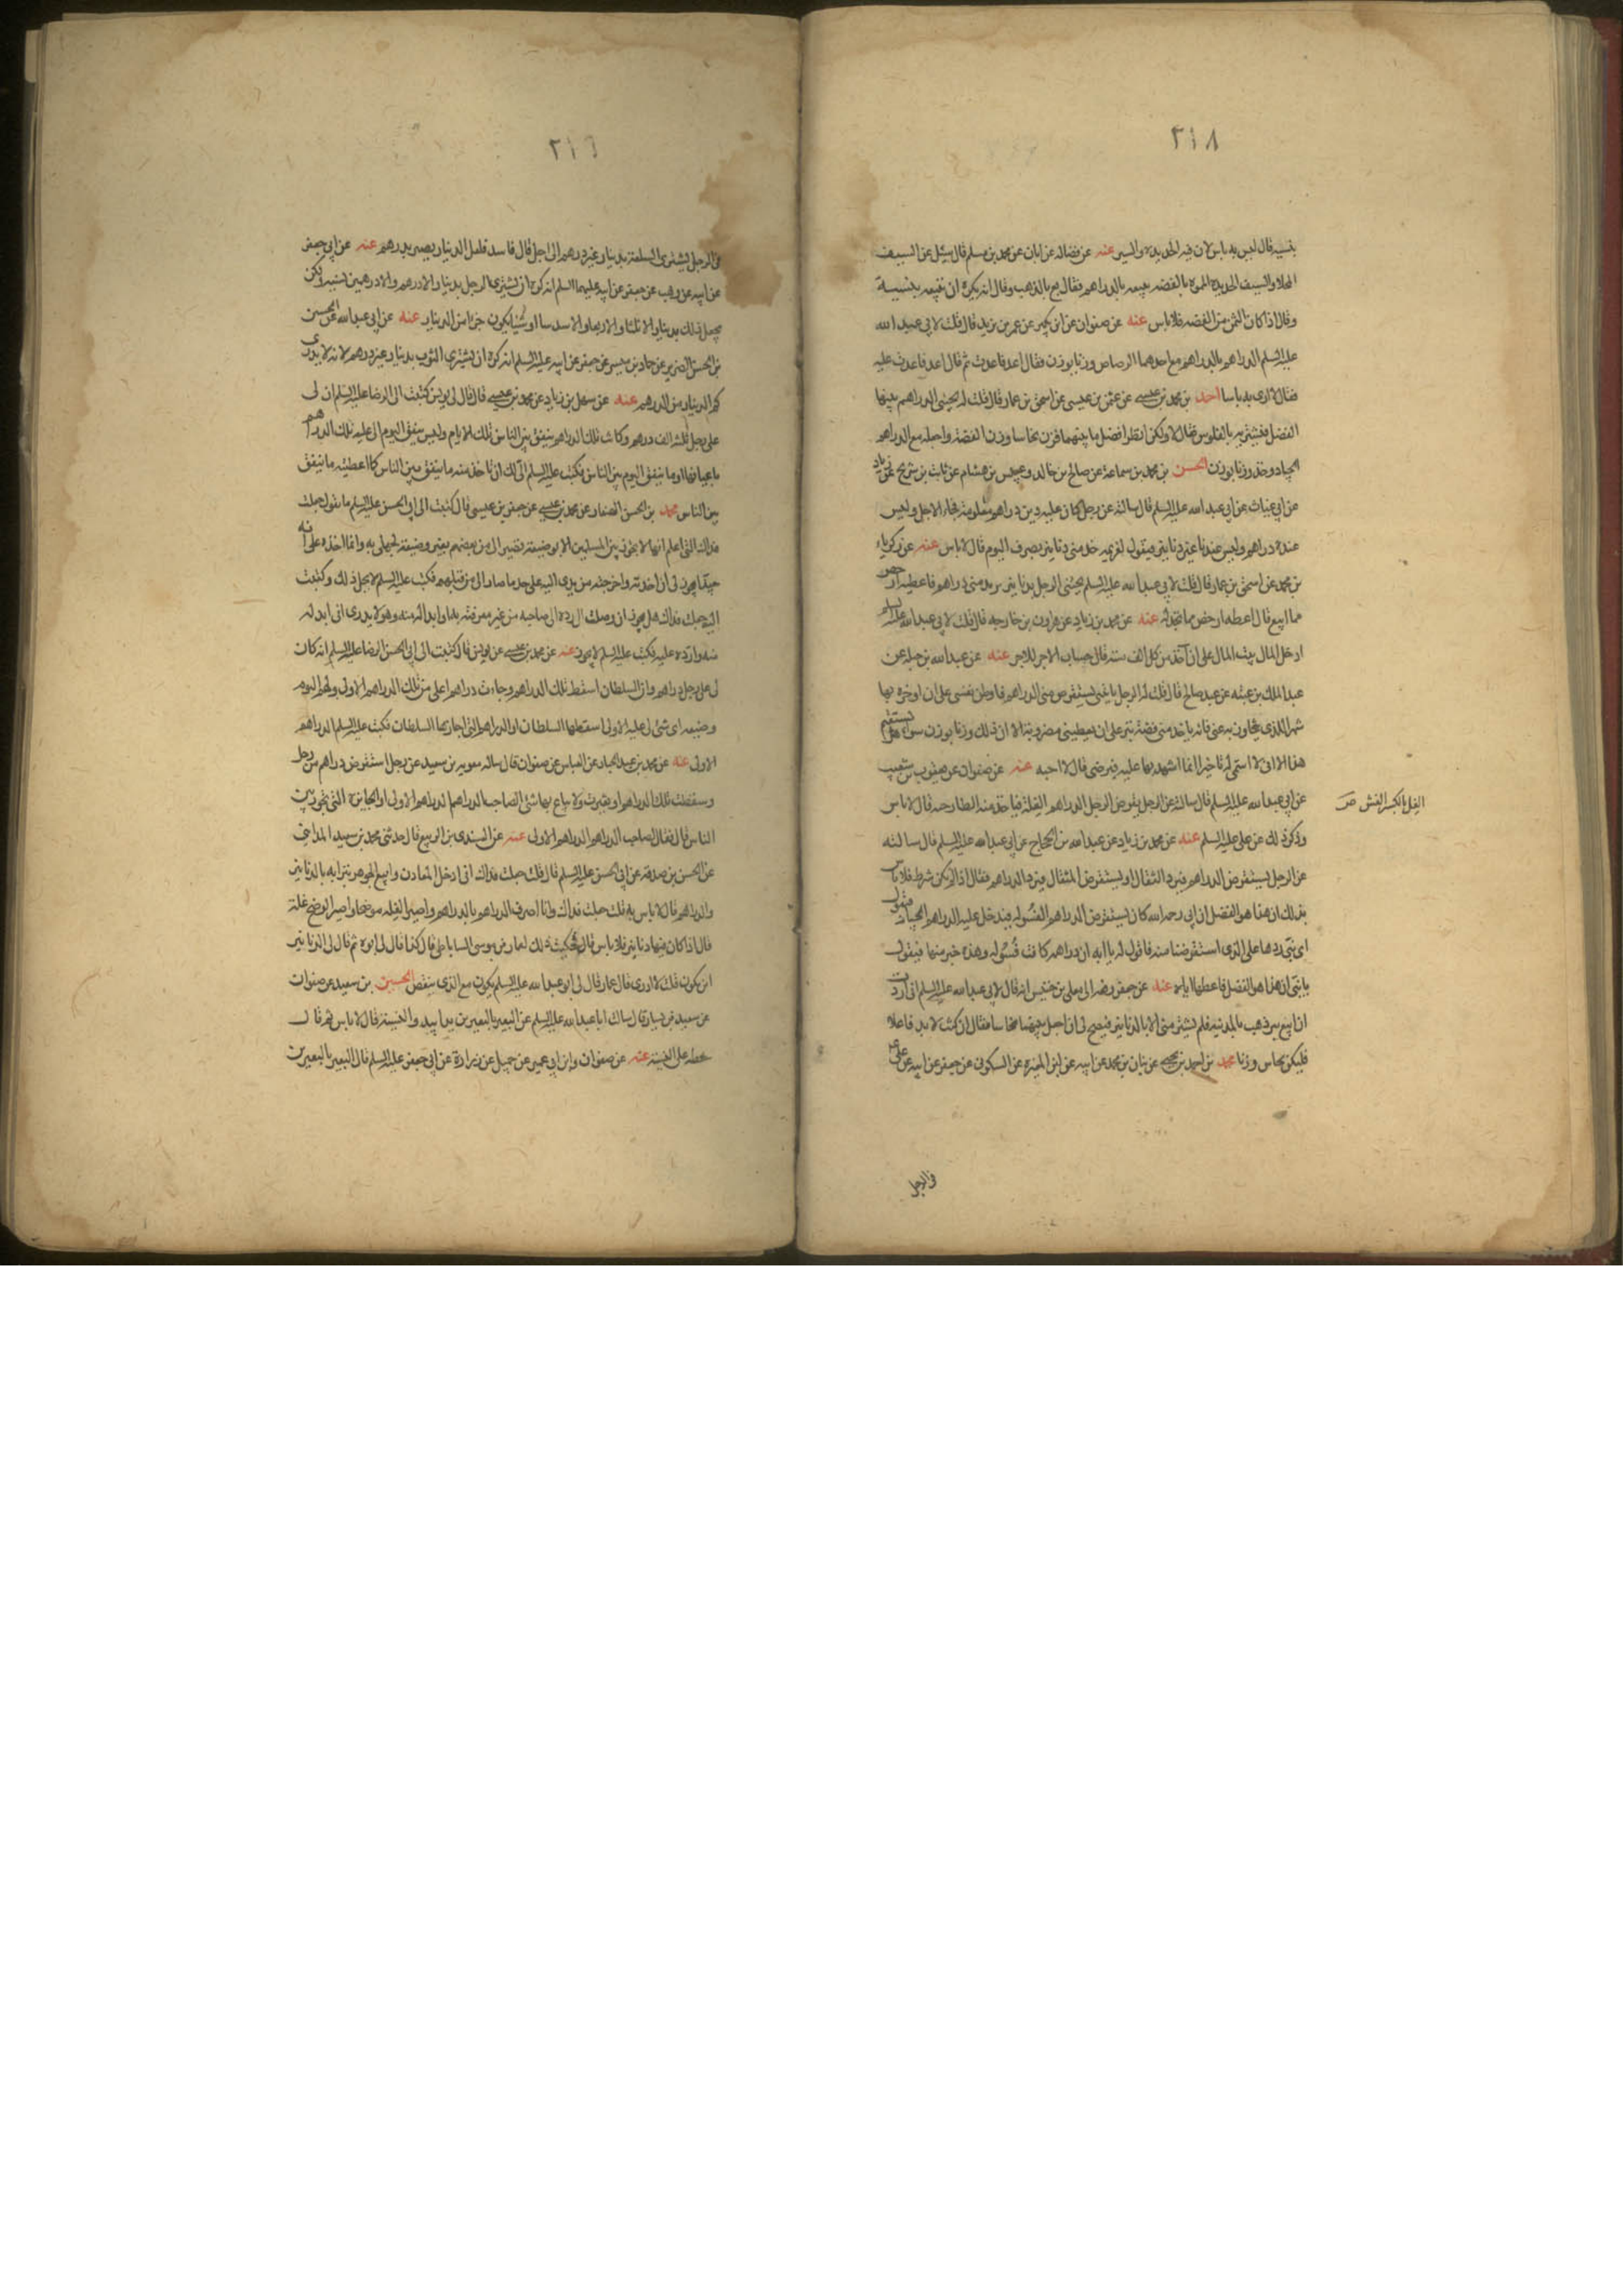 ٣١٨
بنسيه قال ليس به باس لان فيه الحديدة والسير عنه عن فضاله عن ابان عن محمد بن مسلم قال سئل عن السيف
المحلا والسيف الحديد المموه بالفضه يبيعه بالدراهم فقال بع بالذهب وقال انه يكره ان تبيعه بنسيئة
وقال اذا كان الثمن من الفضه فلا باس عنه عن صفوان عن ابن بكير عن عمر بن يزيد قال قلت لابي عبد الله
عليه السلم الدراهم بالدراهم مع احدهما الرصاص وزنا بوزن فقال اعد فاعدت ثم قال اعد فاعدت عليه
فقال لا ارى به باسا احمد بن محمد بن عيسى عن عثمن بن عيسى عن اسحق بن عمار قال قلت له يجيئني الدراهم بينها
الفضل فنشتريه بالفلوس فقال لا ولكن انظر افضل ما بينهما فزن نحاسا وزن الفضة واجعله مع الدراهم
الجياد وخذ وزنا بوزن الحسن بن محمد بن سماعة عن صالح بن خالد وعبيس بن هشام عن ثابت بن شريح عن زياد
عن ابي غياث عن ابي عبد الله عليه السلم قال سالته عن رجل كان عليه دين دراهم معلومة فجاء الاجل وليس
عنده دراهم وليس عنده غير دنانير فيقول لغريمه خذ مني دنانير بصرف اليوم قال لا باس عنه عن زكرياء
بن محمد عن اسحق بن عمار قال قلت لابي عبد الله عليه السلم يجيئني الرجل بدنانير يريد مني دراهم فاعطيه ارخص
مما ابيع قال اعطه ارخص مما تجد له عنه عن محمد بن زياد عن هارون بن خارجه قال قلت لابي عبد الله عليه السلم
ادخل المال بيت المال على ان آخذ من كل الف سته قال حساب الاجر للاجر عنه عن عبد الله بن جبله عن
عبد الملك بن عتبه عن عبد صالح قال قلت له الرجل ياتيني يستقرض مني الدراهم فاوطن نفسي على ان اوخره بها
شهرا للذي يتجاوز به عني فانه ياخذ مني فضة تبر على ان يعطيني مضروبة الا ان ذلك وزنا بوزن سواء هل يستقيم
هذا الا اني لا اسمي له تاخيرا انما اشهد بها عليه فيرضى قال لا احبه عنه عن صفوان عن يعقوب بن شعيب
عن ابي عبد الله عليه السلم قال سالته عن الرجل يقرض الرجل الدراهم الغلة فياخذ منه الطازجه قال لا باس
وذكر ذلك عن علي عليه السلم عنه عن محمد بن زياد عن عبد الله بن الحجاج عن ابي عبد الله عليه السلم قال سالته
عن الرجل يستقرض الدراهم فيرد المثقال او يستقرض المثقال فيرد الدراهم فقال اذا لم يكن شرط فلا باس
بذلك ان هذا هو الفضل ان ابي رحمه الله كان يستقرض الدراهم الفسولة فيدخل عليه الدراهم الجياد فيقول
اي بني ردها على الذي استقرضنا منه فاقول له يا ابه ان دراهمه كانت فسولة وهذه خير منها فيقول
يا بني ان هذا هو الفضل فاعطها اياه عنه عن جعفر رفعه الى معلى بن خنيس انه قال لابي عبد الله عليه السلم اني اردت
ان ابيع تبر ذهب بالمدينه فلم يشتر مني الا بالدنانير فيصح لي ان اجعل بينهما نحاسا فقال ان كنت لا بد فاعلا
فليكن نحاس وزنا محمد بن احمد بن يحيى عن بنان بن محمد عن ابيه عن ابن المغيره عن السكوني عن جعفر عن ابيه عن علي
الغل بالكسر الغش ص
في الرجل
٣١٩
في الرجل يشتري السلعة بدينار غير درهم الى اجل قال فاسد فلعل الدينار يصير بدرهم عنه عن ابي جعفر
عن ابيه عن وهب عن جعفر عن ابيه عليهما السلم انه كره ان يشتري الرجل بدينار الا درهم والا درهمين نسيه ولكن
يجعل ذلك بدينار الا ثلثا والا ربعا والا سدسا او شيئا يكون جزءا من الدينار عنه عن ابي عبد الله عن الحسن
بن الحسن الضرير عن حماد بن ميسر عن جعفر عن ابيه عليه السلم انه كره ان يشتري الثوب بدينار غير درهم لانه لا يدري
كم الدينار من الدرهم عنه عن سهل بن زياد عن محمد بن عيسى قال قال لي يونس كتبت الى الرضا عليه السلم ان لي
على رجل ثلثه الف درهم وكانت تلك الدراهم ينفق بين الناس تلك الايام وليس ينفق اليوم الى عليه تلك الدراهم
باعيانها او ما ينفق اليوم بين الناس فكتب عليه السلم الي لك ان تاخذ منه ما ينفق بين الناس كما اعطيته ما ينفق
بين الناس محمد بن الحسن الصفار عن محمد بن عيسى عن جعفر بن عيسى قال كتبت الى ابي الحسن عليه السلم ما تقول جعلت
فداك التي اعلم انها لا يجوز بين المسلمين الا بوضيعة تصير الي من بعضهم بغير وضيعة لجهلي به وانما اخذه على انه
جيد ايجوز لي ان اخذته واخرجته من يدي اليه على حد ما صار الي من قبلهم فكتب عليه السلم لا يحل ذلك وكتبت
اليه جعلت فداك هل يجوز ان وصلت الي رده الى صاحبه من غير معرفته بها وابداله منه وهو لا يدري اني ابدله
منه وارده عليه فكتب عليه السلم لا يجوز عنه عن محمد بن عيسى عن يونس قال كتبت الى ابي الحسن الرضا عليه السلم انه كان
لي على رجل دراهم وان السلطان اسقط تلك الدراهم وجاءت دراهم اعلى من تلك الدراهم الاولى ولهم اليوم
وضيعه اي شي لي عليه الاولى اسقطها السلطان او الدراهم التي اجازها السلطان فكتب عليه السلم الدراهم
الاولى عنه عن محمد بن عبد الجبار عن العباس عن صفوان قال ساله معويه بن سعيد عن رجل استقرض دراهم من رجل
وسقطت تلك الدراهم او تغيرت ولا يباع بها شي الصاحب الدراهم الدراهم الاولى او الجايزة التي تجوز بين
الناس قال فقال لصاحب الدراهم الدراهم الاولى عنه عن السندي بن الربيع قال حدثني محمد بن سعيد المدايني
عن الحسن بن صدقة عن ابي الحسن عليه السلم قال قلت جعلت فداك اني ادخل المعادن وابيع الجوهر بترابه بالدنانير
والدراهم قال لا باس به قلت جعلت فداك وانا اصرف الدراهم بالدراهم واصير الغله موضحا واصير الوضح غلة
قال اذا كان فيها دنانير فلا باس قال فحكيت ذلك لعمار بن موسى الساباطي قال كذا قال لي ابوه ثم قال لي الدنانير
اين يكون قلت لا ادري قال عمار قال لي ابو عبد الله عليه السلم يكون مع الذي ينقص الحسين بن سعيد عن صفوان
عن سعيد بن يسار قال سالت ابا عبد الله عليه السلم عن البعير بالبعيرين يدا بيد والنسية قال لا باس ثم قال
خط على النسية عنه عن صفوان وابن ابي عمير عن جميل عن زرارة عن ابي جعفر عليه السلم قال البعير بالبعيرين